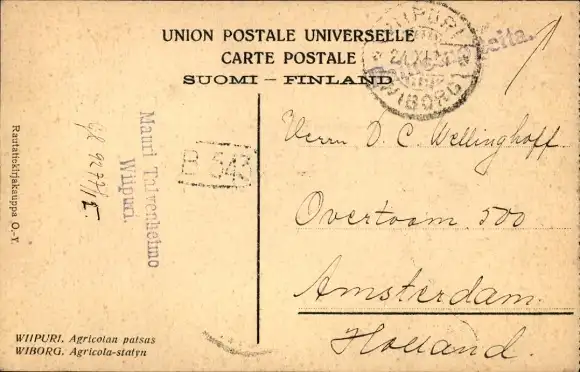 UNION POSTALE UNIVERSELLE
CARTE POSTALE
SUOMI – FINLAND
WIIPURI
WIBORG
Herrn D. C. Wellinghoff
Overtoom 500
Amsterdam.
Holland.
Mauri Talvenheimo
Wiipuri.
543
Rautatiekirjakauppa O.-Y.
WIIPURI. Agricolan patsas
WIBORG. Agricola-statyn